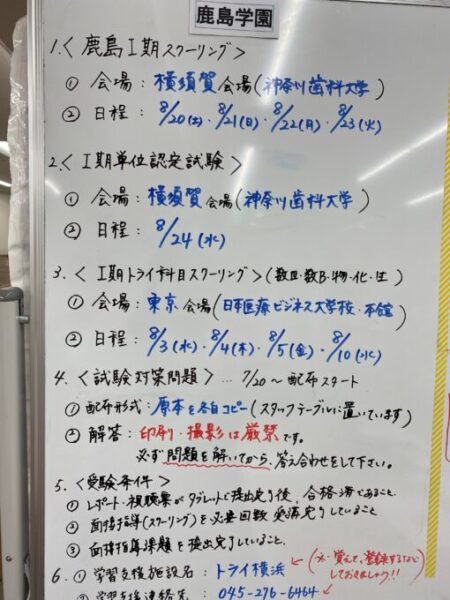 鹿島学園
1.〈 鹿島Ⅰ期スクーリング 〉
① 会場 : 横須賀会場 (神奈川歯科大学)
② 日程 : 8/20(土)・8/21(日)・8/22(月)・8/23(火)
2.〈 Ⅰ期単位認定試験 〉
① 会場 : 横須賀会場 (神奈川歯科大学)
② 日程 : 8/24(水)
3.〈 Ⅰ期トライ科目スクーリング 〉(数Ⅲ・数B・物・化・生)
① 会場 : 東京会場 (日本医療ビジネス大学校・本館)
② 日程 : 8/3(水)・8/4(木)・8/5(金)・8/10(水)
4.〈試験対策問題〉… 7/20〜配布スタート
① 配布形式 : 原本を各自コピー (スタッフテーブルに置いています)
② 解答 : 印刷・撮影は厳禁です。
必ず問題を解いてから、答え合わせをして下さい。
5.〈受験条件〉
① レポート・視聴票がタブレットで提出完了後、合格済であること.
② 面接指導(スクーリング)を必要回数 受講完了していること
③ 面接指導課題を提出完了していること.
6. ① 学習支援施設名 : トライ横浜 ← (※覚えて、
しておきましょう!!)
② 学習支援連絡先 : 045-276-6464